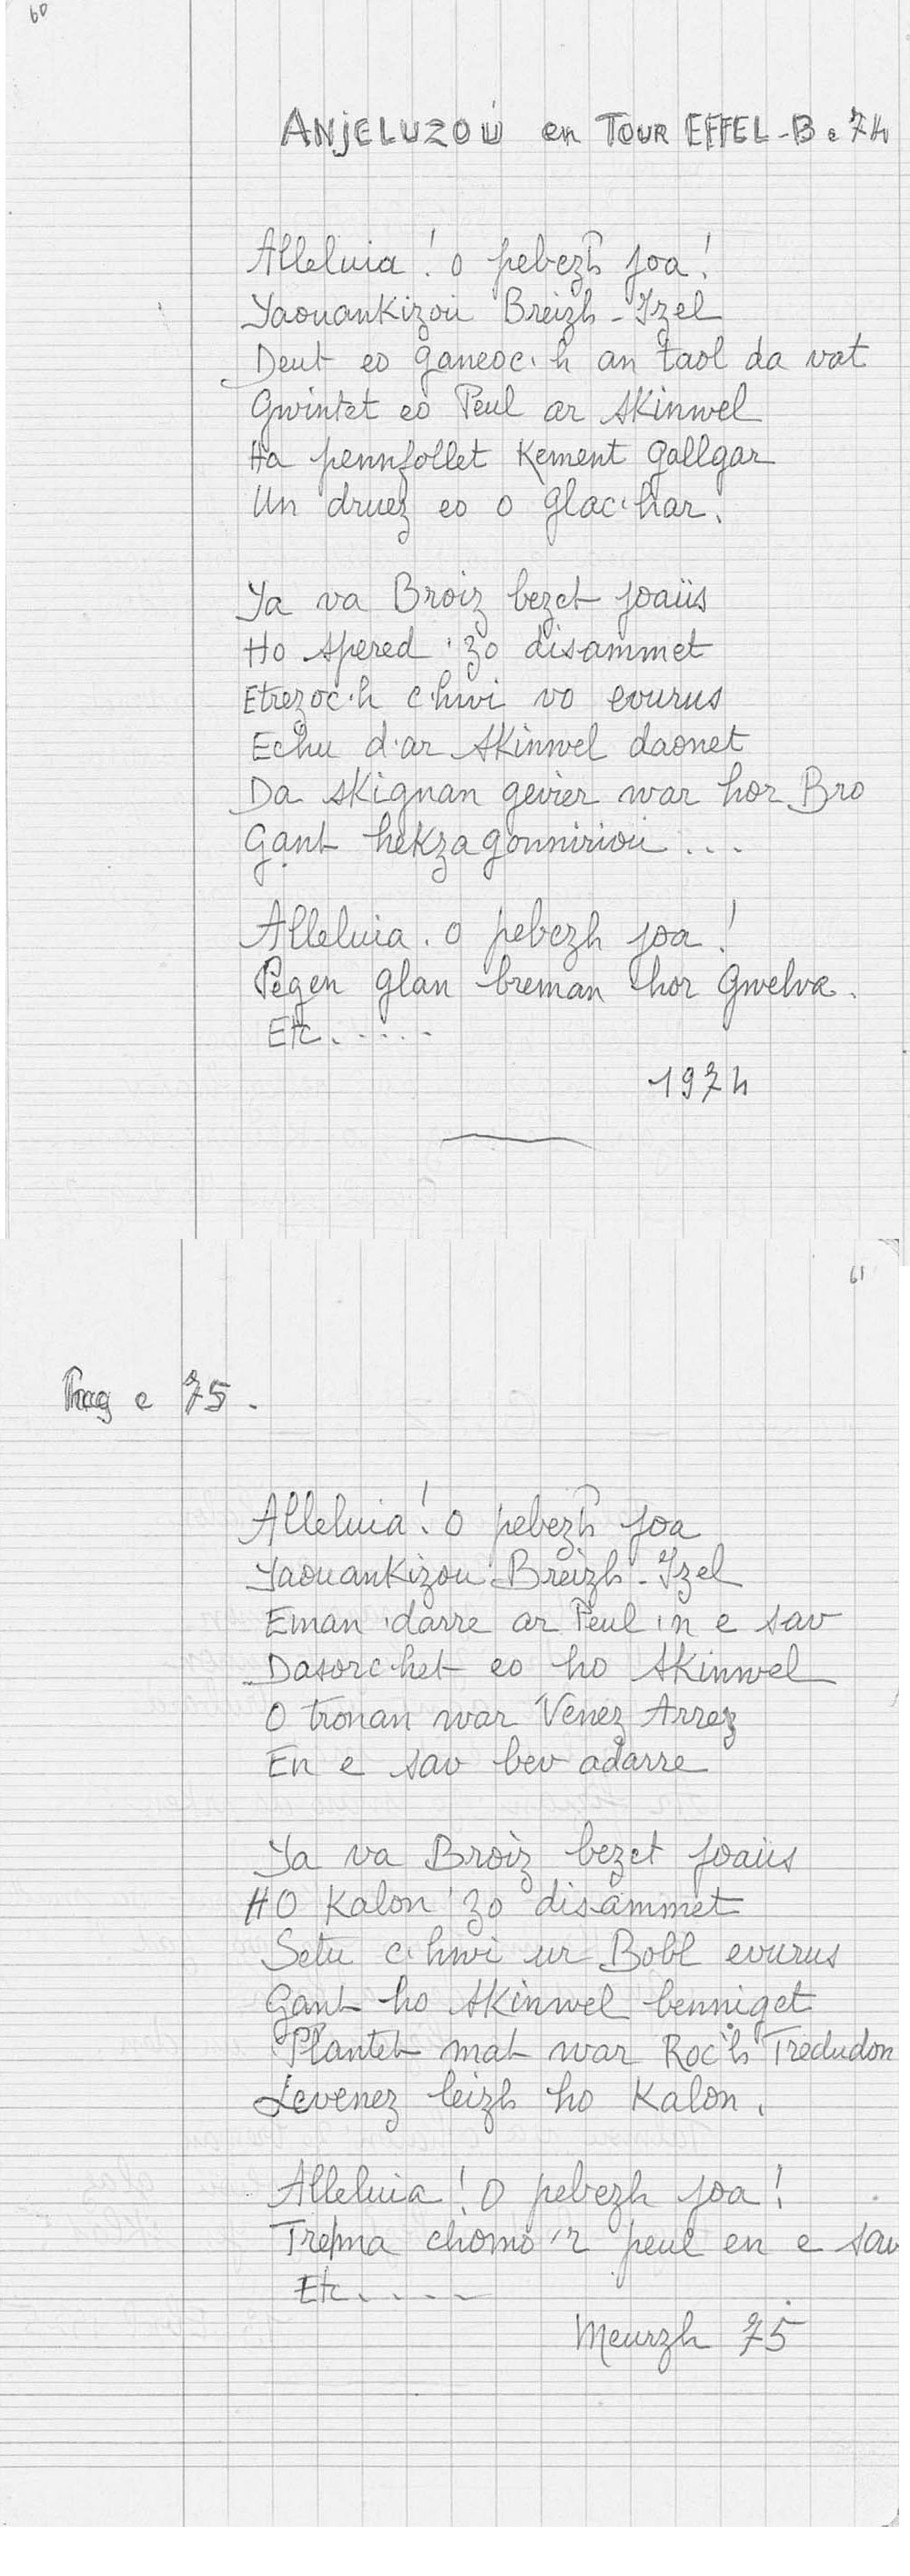 60
ANJELUZOÙ en TOUR EFFEL-B e 74
Alleluia ! o pebezh joa !
Yaouankizoù Breizh-Izel
Deut eo ganeoc'h an taol da vat
Gwintet eo Peul ar skinwel
Ha pennfollet kement gallgar
Un druez eo o glac'har.
Ya va Broiz bezet joaüs
Ho spered 'zo disammet
Etrezoc'h c'hwi vo evurus
Echu d'ar skinwel daonet
Da skignan gevier war hor Bro
Gant hekzagonniriou ...
Alleluia . o pebezh joa !
Pegen glan breman hor gwelva.
Etc.....
1974
61
e 75.
Alleluia ! o pebezh joa
Yaouankizou Breizh-Izel
Eman 'darre ar Peul 'n e sav
Dasorc'het eo ho skinwel
O tronan war Venez Arrez
En e sav bev adarre
Ya va Broiz bezet joaüs
Ho kalon 'zo disammet
Setu c'hwi ur Bobl evurus
Gant ho skinwel benniget
Plantet mat war Roc'h Tredudon
Levenez leizh ho kalon.
Alleluia ! O pebezh joa !
Trepma chomo 'r peul en e sav
Etc.....
Meurzh 75